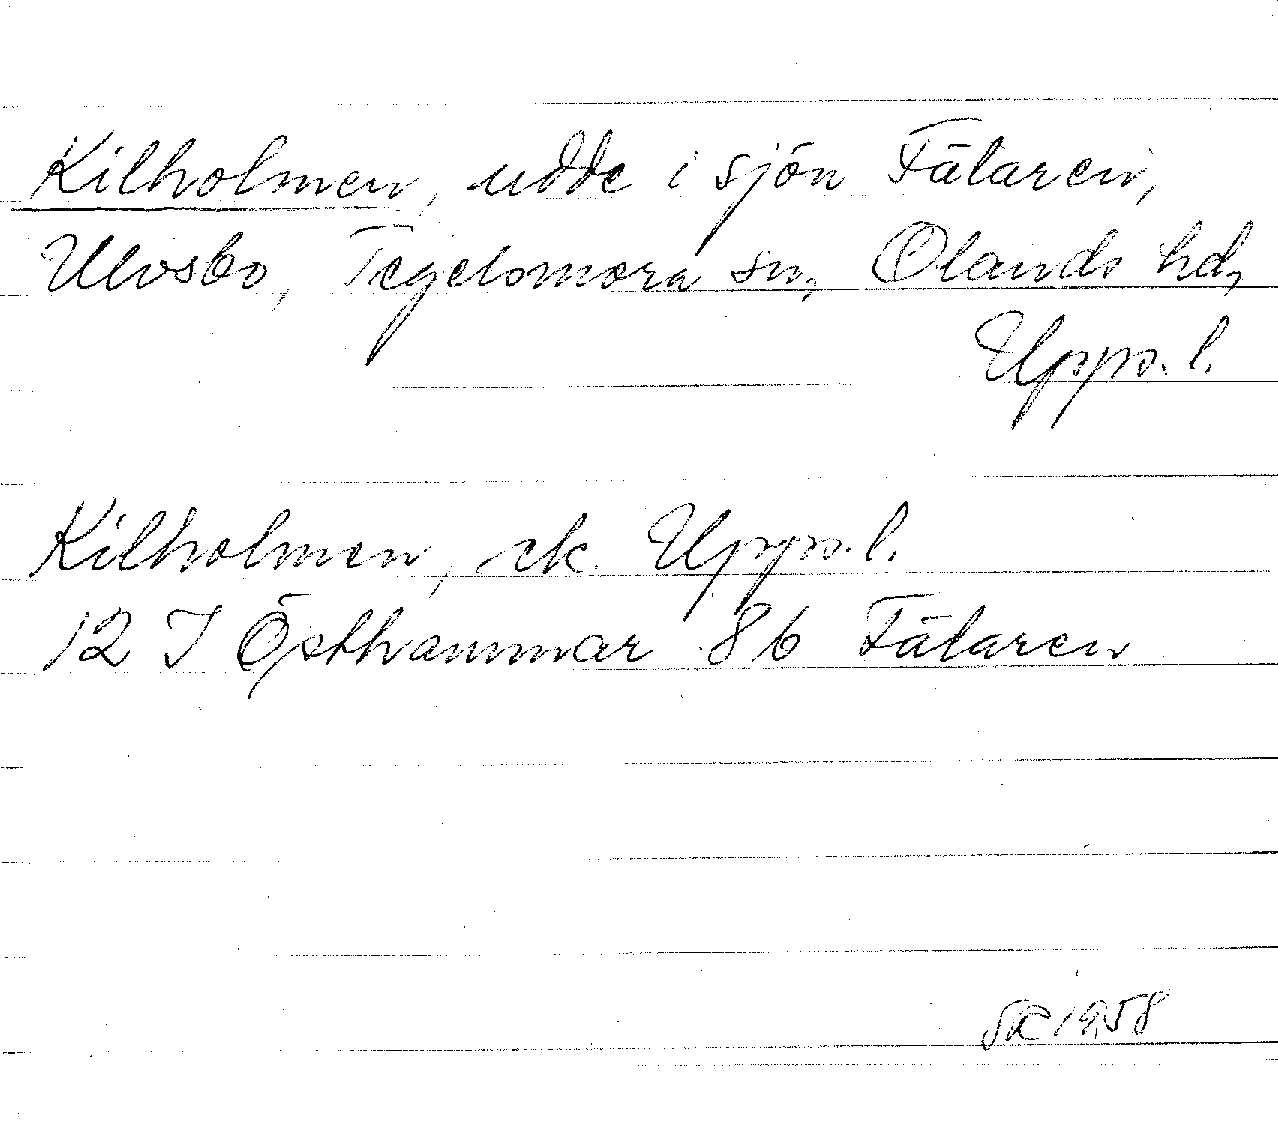 Kilholmen, udde i sjön Fälaren,
Ulvsbo, Tegelsmora sn, Olands hd,
Upps. l.
Kilholmen, ek. Upps. l.
12 I Östhammar 86 Fälaren
1958